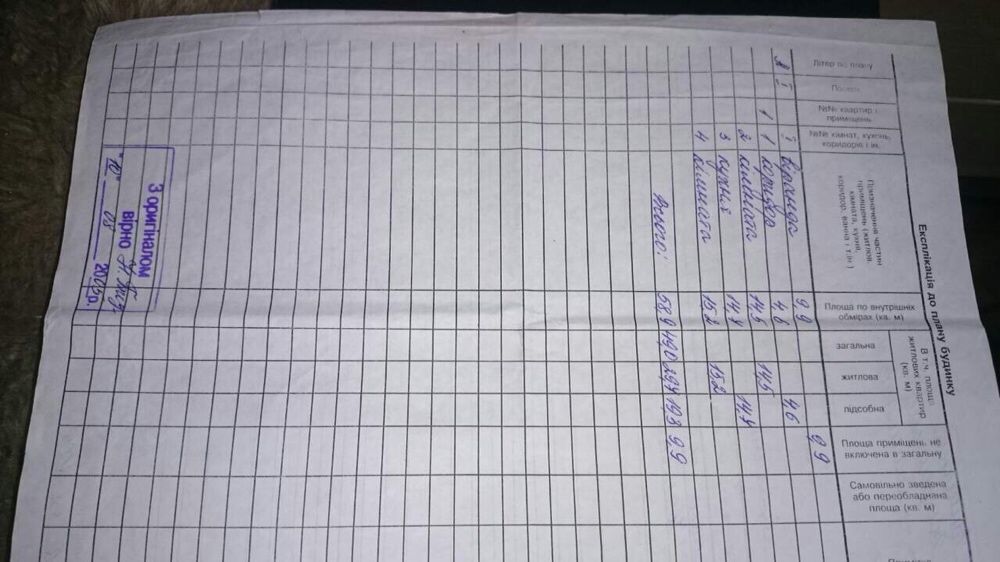 Експлікація до плану будинку
Літер по плану
Поверх
№№ квартир і приміщень
№№ кімнат, кухень, коридорів і ін.
Призначення частин приміщень (житлов. кімната, кухня, коридор, ванна і т.ін.)
Площа по внутрішніх обмірах (кв. м)
В т.ч. площі житлових квартир (кв. м)
загальна
житлова
підсобна
Площа приміщень не включена в загальну
Самовільно зведена або переобладнана площа (кв. м)
І веранда 9,9 9,9
1 1 коридор 4,6 4,6
2 кімната 14,5 14,5
3 кухня
4 кімната 15,2 15,2
Всього: 58,9 49,0 29,7 19,3 9,9
З оригіналом
вірно
"10" 03 2005р.